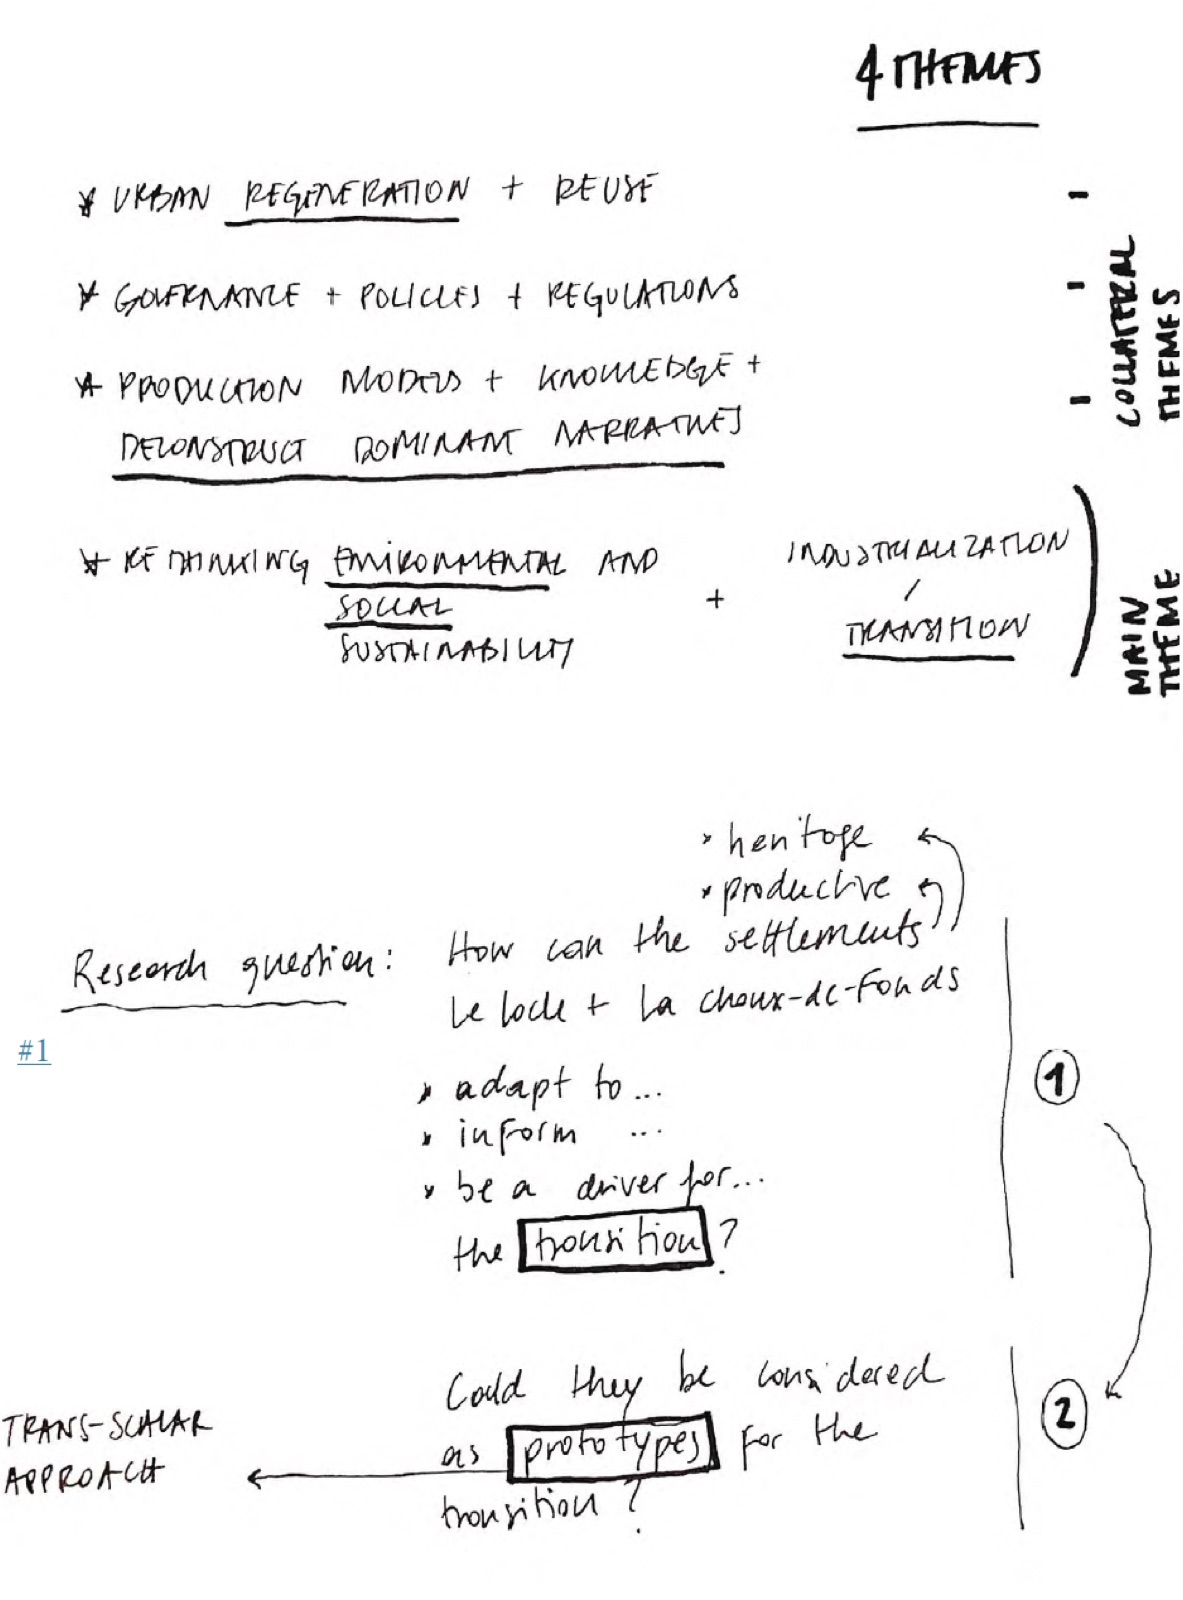 4 THEMES
* URBAN REGENERATION + REUSE -
* GOVERNANCE + POLICIES + REGULATIONS -
* PRODUCTION MODELS + KNOWLEDGE + -
DECONSTRUCT DOMINANT NARRATIVES
COLLATERAL
THEMES
* RETHINKING ENVIRONMENTAL AND
SOCIAL
SUSTAINABILITY
+
INDUSTRIALIZATION
/
TRANSITION
MAIN
THEME
* heritage
* productive
Research question: How can the settlements
Le locle + La chaux-de-Fonds
#1
* adapt to ...
* inform ...
* be a driver for...
the transition ?
1
Could they be considered
as prototypes for the
transition ?
2
TRANS-SCALAR
APPROACH